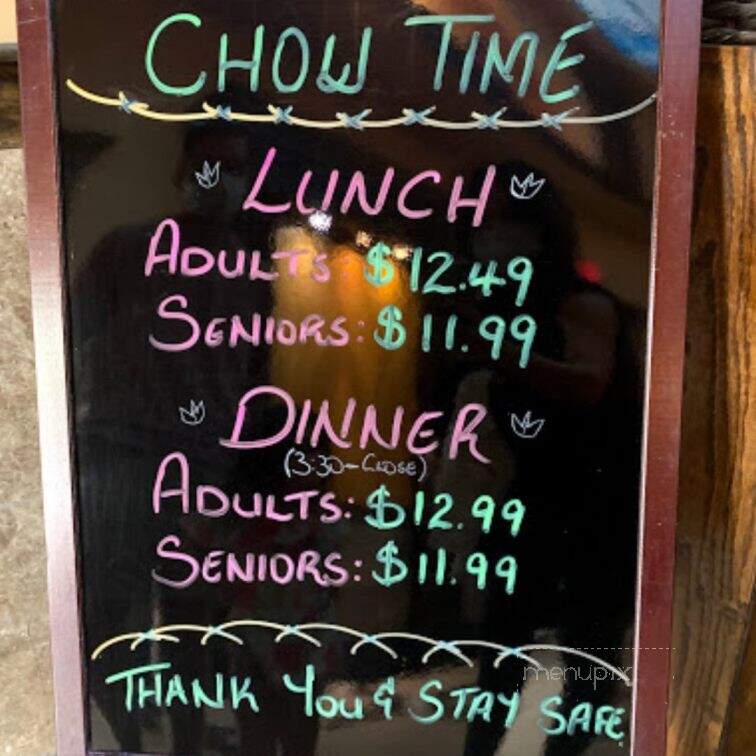 CHOW TIME
LUNCH
ADULTS: $12.49
SENIORS: $11.99
DINNER
(3:30-CLOSE)
ADULTS: $12.99
SENIORS: $11.99
THANK YOU & STAY SAFE
menupix